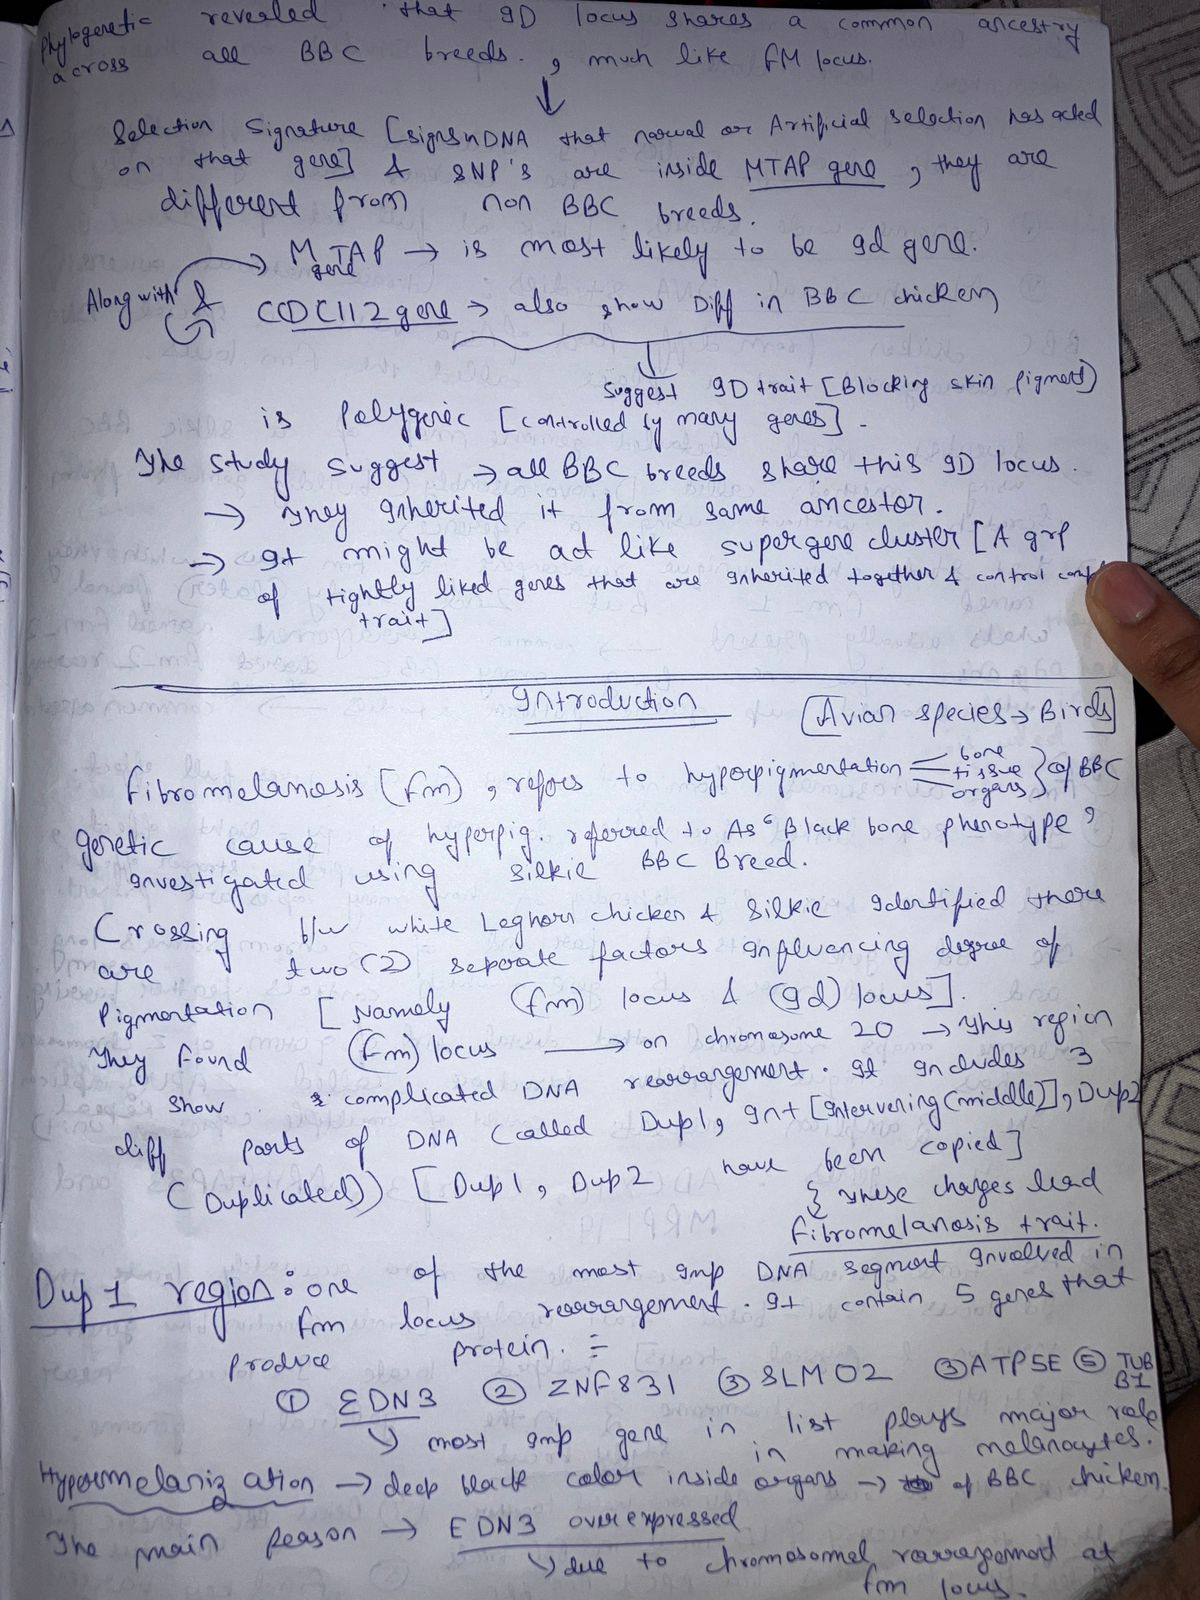 Phylogenetic revealed that ID locus shares a common ancestry
across all BBC breeds. , much like FM locus.
↓
Selection Signature [signs in DNA that natural or Artificial selection has acted
on that gene] & SNP's are inside MTAP gene , they are
different from non BBC breeds.
MTAP gene → is most likely to be Id gene.
Along with &
CCDC112 gene → also show Diff in BBC chicken
Suggest ID trait [Blocking skin pigment)
is Polygenic [controlled by many genes].
The study suggest → all BBC breeds share this ID locus.
→ They Inherited it from same ancestor.
→ It might be act like supergene cluster [A grp
of tightly liked genes that are Inherited together & control
trait]
Introduction
[Avian species → Birds]
Fibromelanosis (Fm) , refers to hyperpigmentation bone tissue organs } of BBC
genetic cause of hyperpig. referred to As "Black bone phenotype"
Investigated using Silkie BBC Breed.
Crossing b/w white Leghorn chicken & Silkie Identified there
are two (2) seperate factors Influencing degree of
Pigmentation [Namely (fm) locus & (Id) locus].
They found (Fm) locus → on chromosome 20 → This region
show complicated DNA rearrangement. It Includes 3
diff parts of DNA (called Dup1, Int [Intervening (middle)], Dup2
(Duplicated)) [Dup1, Dup2 have been copied]
{ These changes lead
Fibromelanosis trait.
Dup 1 region : one of the most Imp DNA segment Involved in
fm locus rearrangement. It contain 5 genes that
produce protein. :-
① EDN3 ② ZNF831 ③ SLMO2 ③ ATP5E ⑤ TUB
B1
↳ most Imp gene in list plays major role
in making melanocytes.
Hypermelanization → deep black color inside organs → of BBC chicken.
The main Reason → EDN3 overexpressed
↳ due to chromosomal rearrangement at
fm locus.